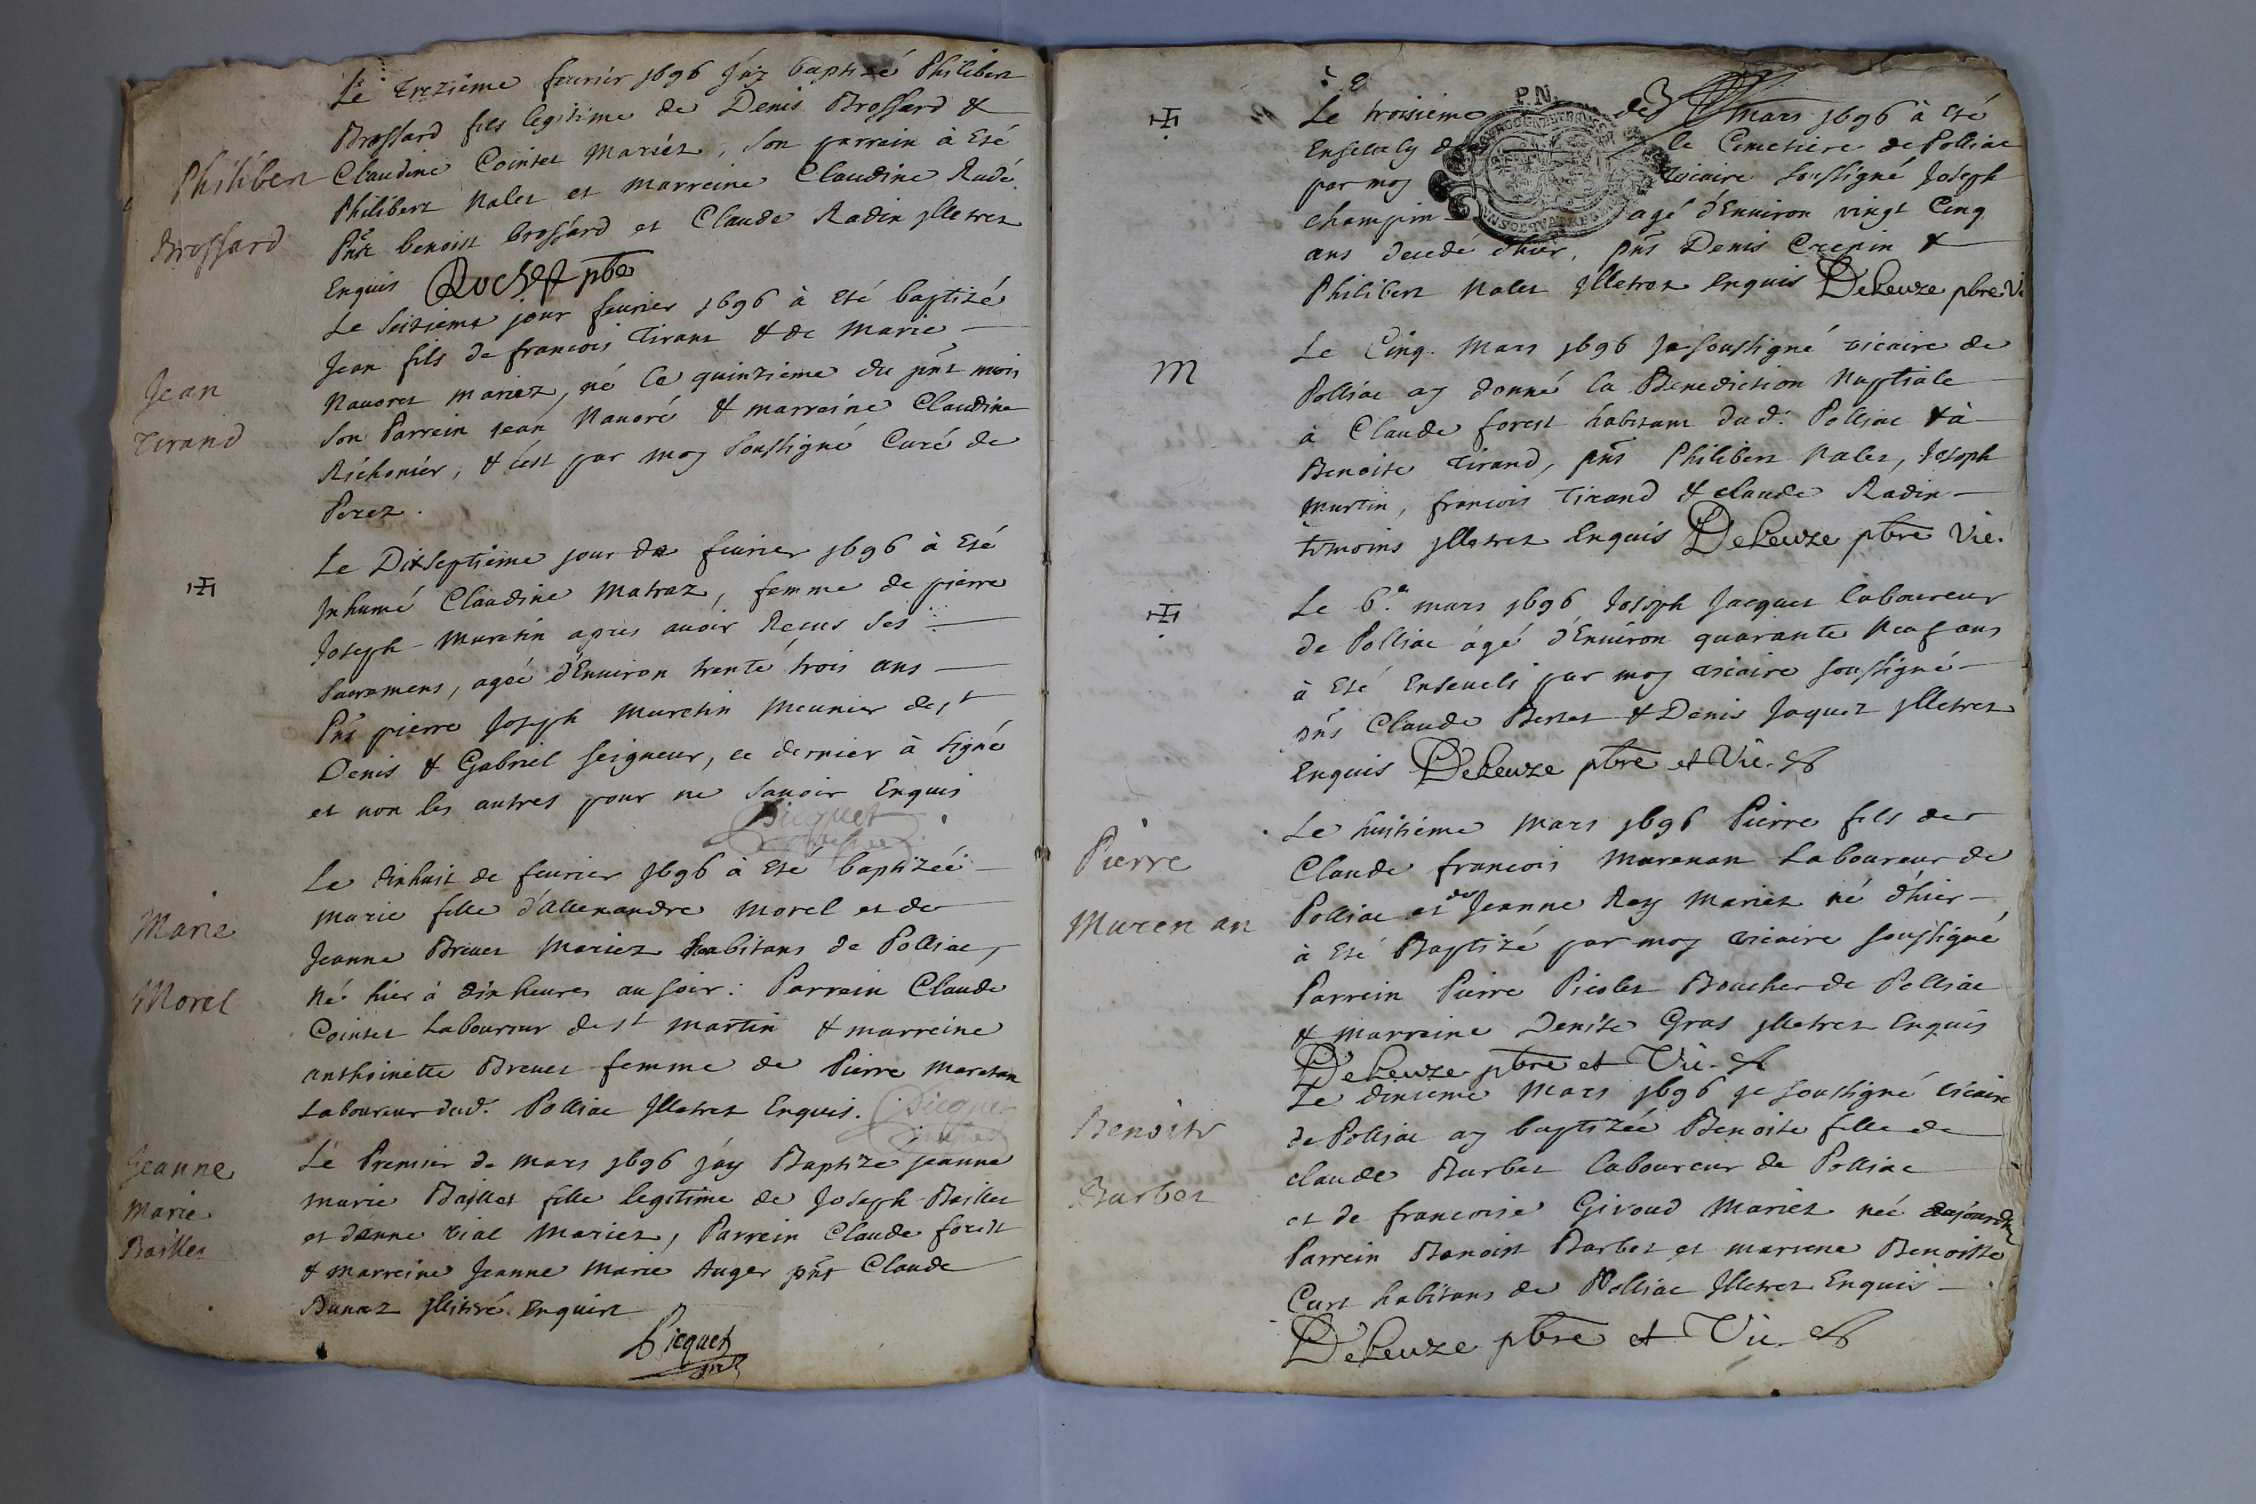 Le trezième feurièr 1696 j'áy baptizé Philibert
Brossard fils legitime de Denis Brossard &
Philibert
Claudine Cointet Mariéz, son parrein à Eté
Philibert Nalet et Marreine Claudine Radé
Brossard
pñt benoist brossard et Claude Radin jlletrez
Enquis Rochet pbre
Le seizieme jour feurier 1696 à Eté baptizé
Jean fils de francois Tirant & de Marie
Jean
Nauoret mariez, né le quinzieme du pñt mois
Tirand
Son Parrein jean Nauoré & marreine Claudine
Richonièr, & c'est par moy soussigné Curé de
Perez.
Le Dixseptième jour de feurier 1696 à Eté
Inhumé Claudine Matraz, femme de pierre
Joseph Muretin apres auoir Receus ses
sacramens, agée d'Enuiron trente trois ans
Pñs pierre Joseph Muretin Meunier de st
Denis & Gabriel seigneur, ce dernier à signé
et non les autres pour ne sauoir Enquis
Picquet
Le dixhuit de feurier 1696 à Eté baptizéé
Marie fille d'Allexandre Morel et de
Marie
Jeanne Breuet Mariez habitans de Polliac,
Né hier à dix heures au soir: Parrein Claude
Morel
Cointet Laboureur de st Martin & marreine
anthoinette Breuet femme de Pierre Maretan
Laboureur dud. Polliac Jlletrez Enquis. Picquet
Le Premier de Mars 1696 j'áy Baptize jeanne
Jeanne
marie Baillet fille legitime de Joseph Baillet
Marie
et d'anne vial Mariez, Parrein Claude forest
Baillet
& marreine Jeanne Marie Auger pñs Claude
Bunaz jllitré Enquist
Picquet
P.N.
Le troisieme de Mars 1696 à Eté
Ensevely le Cimetiere de Polliac
par moy vicaire soussigné Joseph
champin agé d'Enuiron vingt Cinq
ans decede d'hier, pñs Denis Crepin &
Philibert Nalet Jlletrez Enquis DeLeuze pbre Vi
Le Cinq. Mars 1696 Je soussigné vicaire de
M
Polliac ay donné la Benediction Nuptiale
à Claude forest habitant dud. Polliac & à
Benoite Tirand, pñs Philibert Nalet, Joseph
Murtin, francois Tirand & claude Radin
temoins jlletrez Enquis DeLeuze pbre Vic.
Le 6.e mars 1696 Joseph Jacquet laboureur
de Polliac ágé d'Enuiron quarante Neuf ans
à Eté Enseueli par moy vicaire soussigné
pñs Claude Bertet & Denis Jaquet jlletrez
Enquis DeLeuze pbre et Vic.
Le huitiéme Mars 1696 Pierre fils de
Pierre
Claude francois Marenan Laboureur de
Polliac et de Jeanne Rey Mariez né d'hier
Muren an
à Eté Baptizé par moy vicaire soussigné
Parrein Pierre Picolet Boucher de Polliac
& Marreine Denise Gras jlletrez Enquis
DeLeuze pbre et Vic.
Le dixieme Mars 1696 je soussigné vicaire
Benoite
de Polliac ay baptizéé Benoite fille de
claude Barbet laboureur de Polliac
Barbet
et de francoise Givoud Mariez neé
Parrein Benoist Barbet et marrene Benoitte
Curt habitans de Polliac Jlletrez Enquis
DeLeuze pbre et Vic.